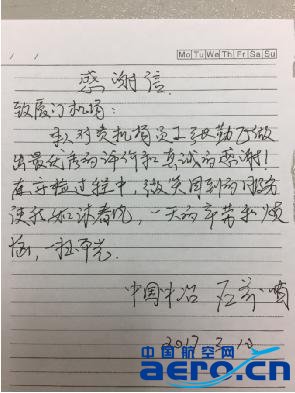 Mo Tu We Th Fr Sa Su
感谢信
致厦门机场：
我对贵机场员工张勤飞做
出最优秀的评价和真诚的感谢！
在安检过程中，微笑周到的服务
使我如沐春风，一天的辛劳和烦
恼，一扫而光．
中国中冶
2017
中国航空网
aero.cn